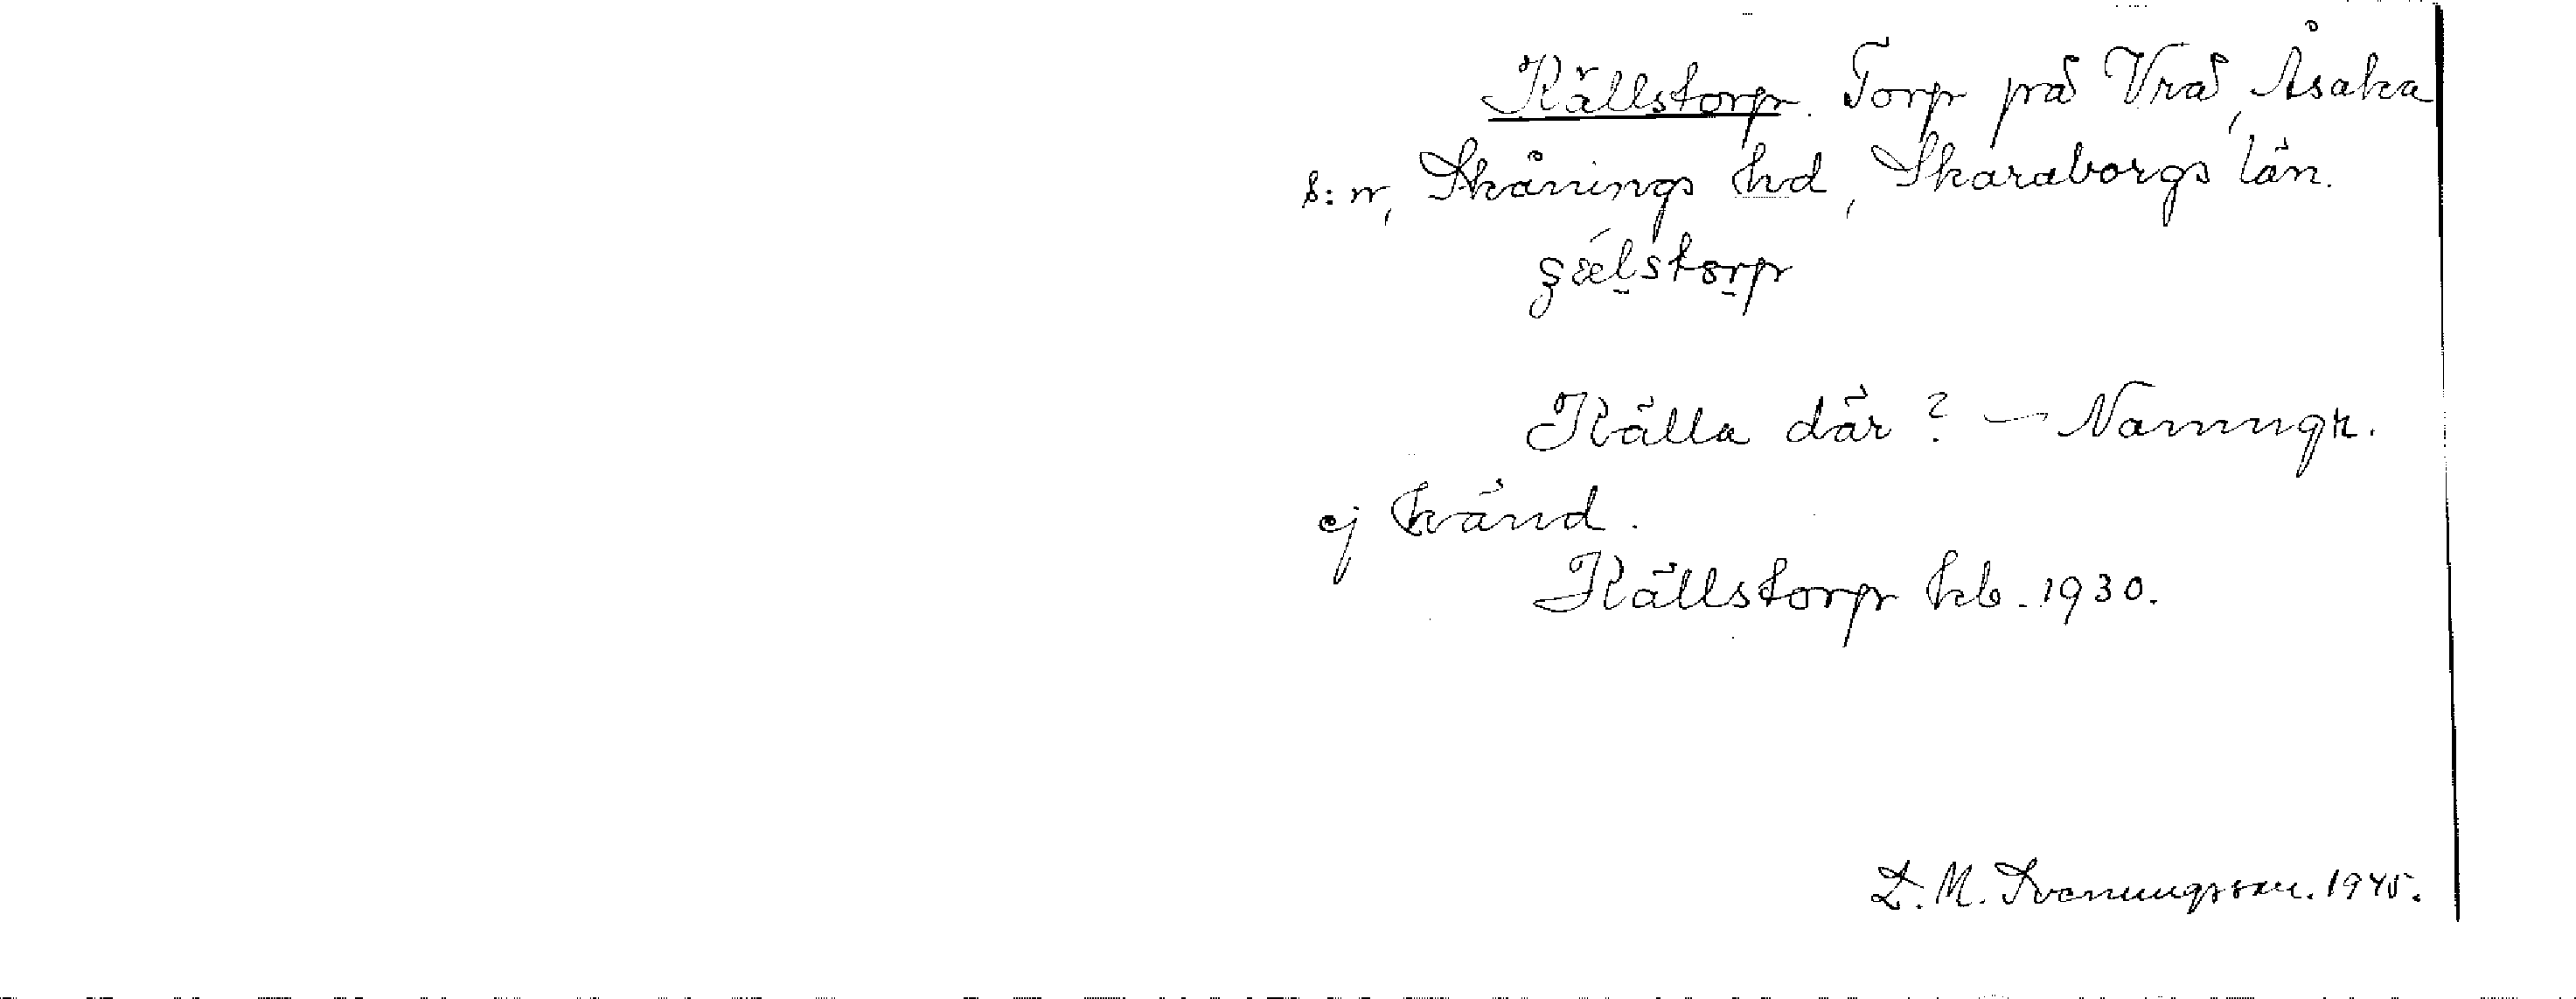 Källstorp. Torp på Vrå, Åsaka
s:n, Skånings hd, Skaraborgs län.
Källa där? — Namngr.
ej känd.
Källstorp kb. 1930.
D. M. Svenungsson. 1945.